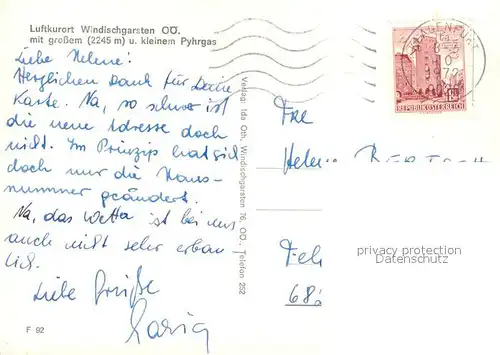 Luftkurort Windischgarsten OÖ.
mit großem (2245 m) u. kleinem Pyhrgas
Liebe Helene!
Herzlichen Dank für Deine
Karte. Na, so schwer ist
die neue Adresse doch
nicht. Im Prinzip hat sich
doch nur die Haus-
nummer geändert.
Na, das Wetter ist bei uns
auch nicht sehr erbau-
lich.
Liebe Grüße
F 92
Verlag: Ida Oth, Windischgarsten 76, OÖ., Telefon 252
KLAGENFURT
REPUBLIK ÖSTERREICH
Helen
privacy protection
Datenschutz